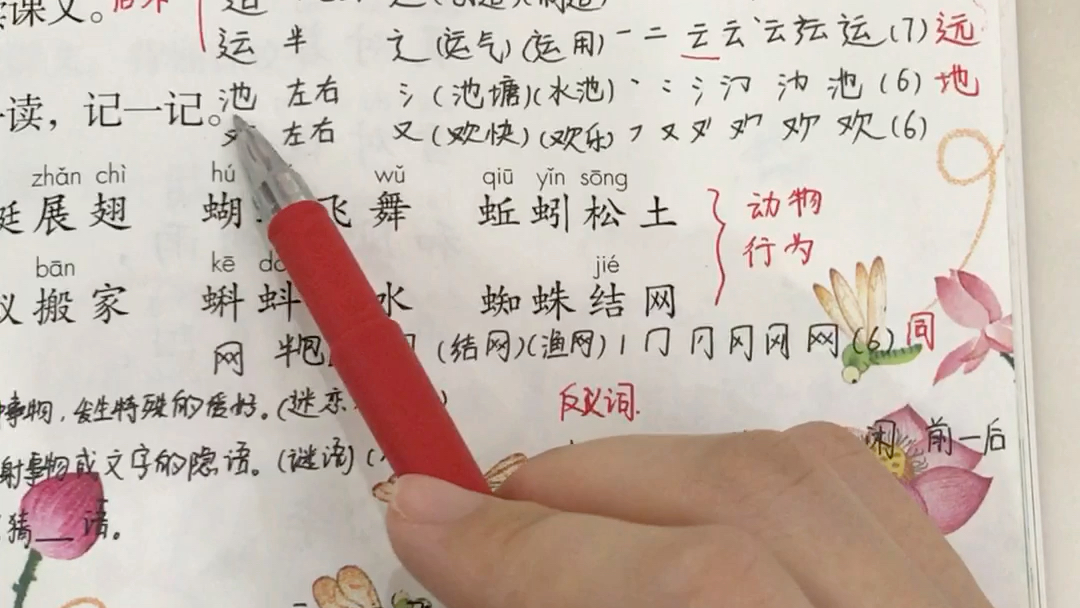 读课文。
运 半 辶 (运气)(运用) 一 二 云 云 运 (7) 远
读，记一记。池 左右 氵 (池塘)(水池) 丶 氵 池 (6) 地
左右 又 (欢快)(欢乐) フ 又 欢 欢 (6)
zhǎn chì hú wǔ qiū yǐn sōng
展翅 蝴 飞舞 蚯蚓松土 动物
行为
bān kē jié
搬家 蝌蚪 水 蜘蛛结网
网 半包 (结网)(渔网) 丨 冂 冈 冈 网 网 (6) 同
事物，发生特殊的爱好。(迷恋 反义词.
射事物或文字的隐语。(谜语) 闲 前—后
猜__语。